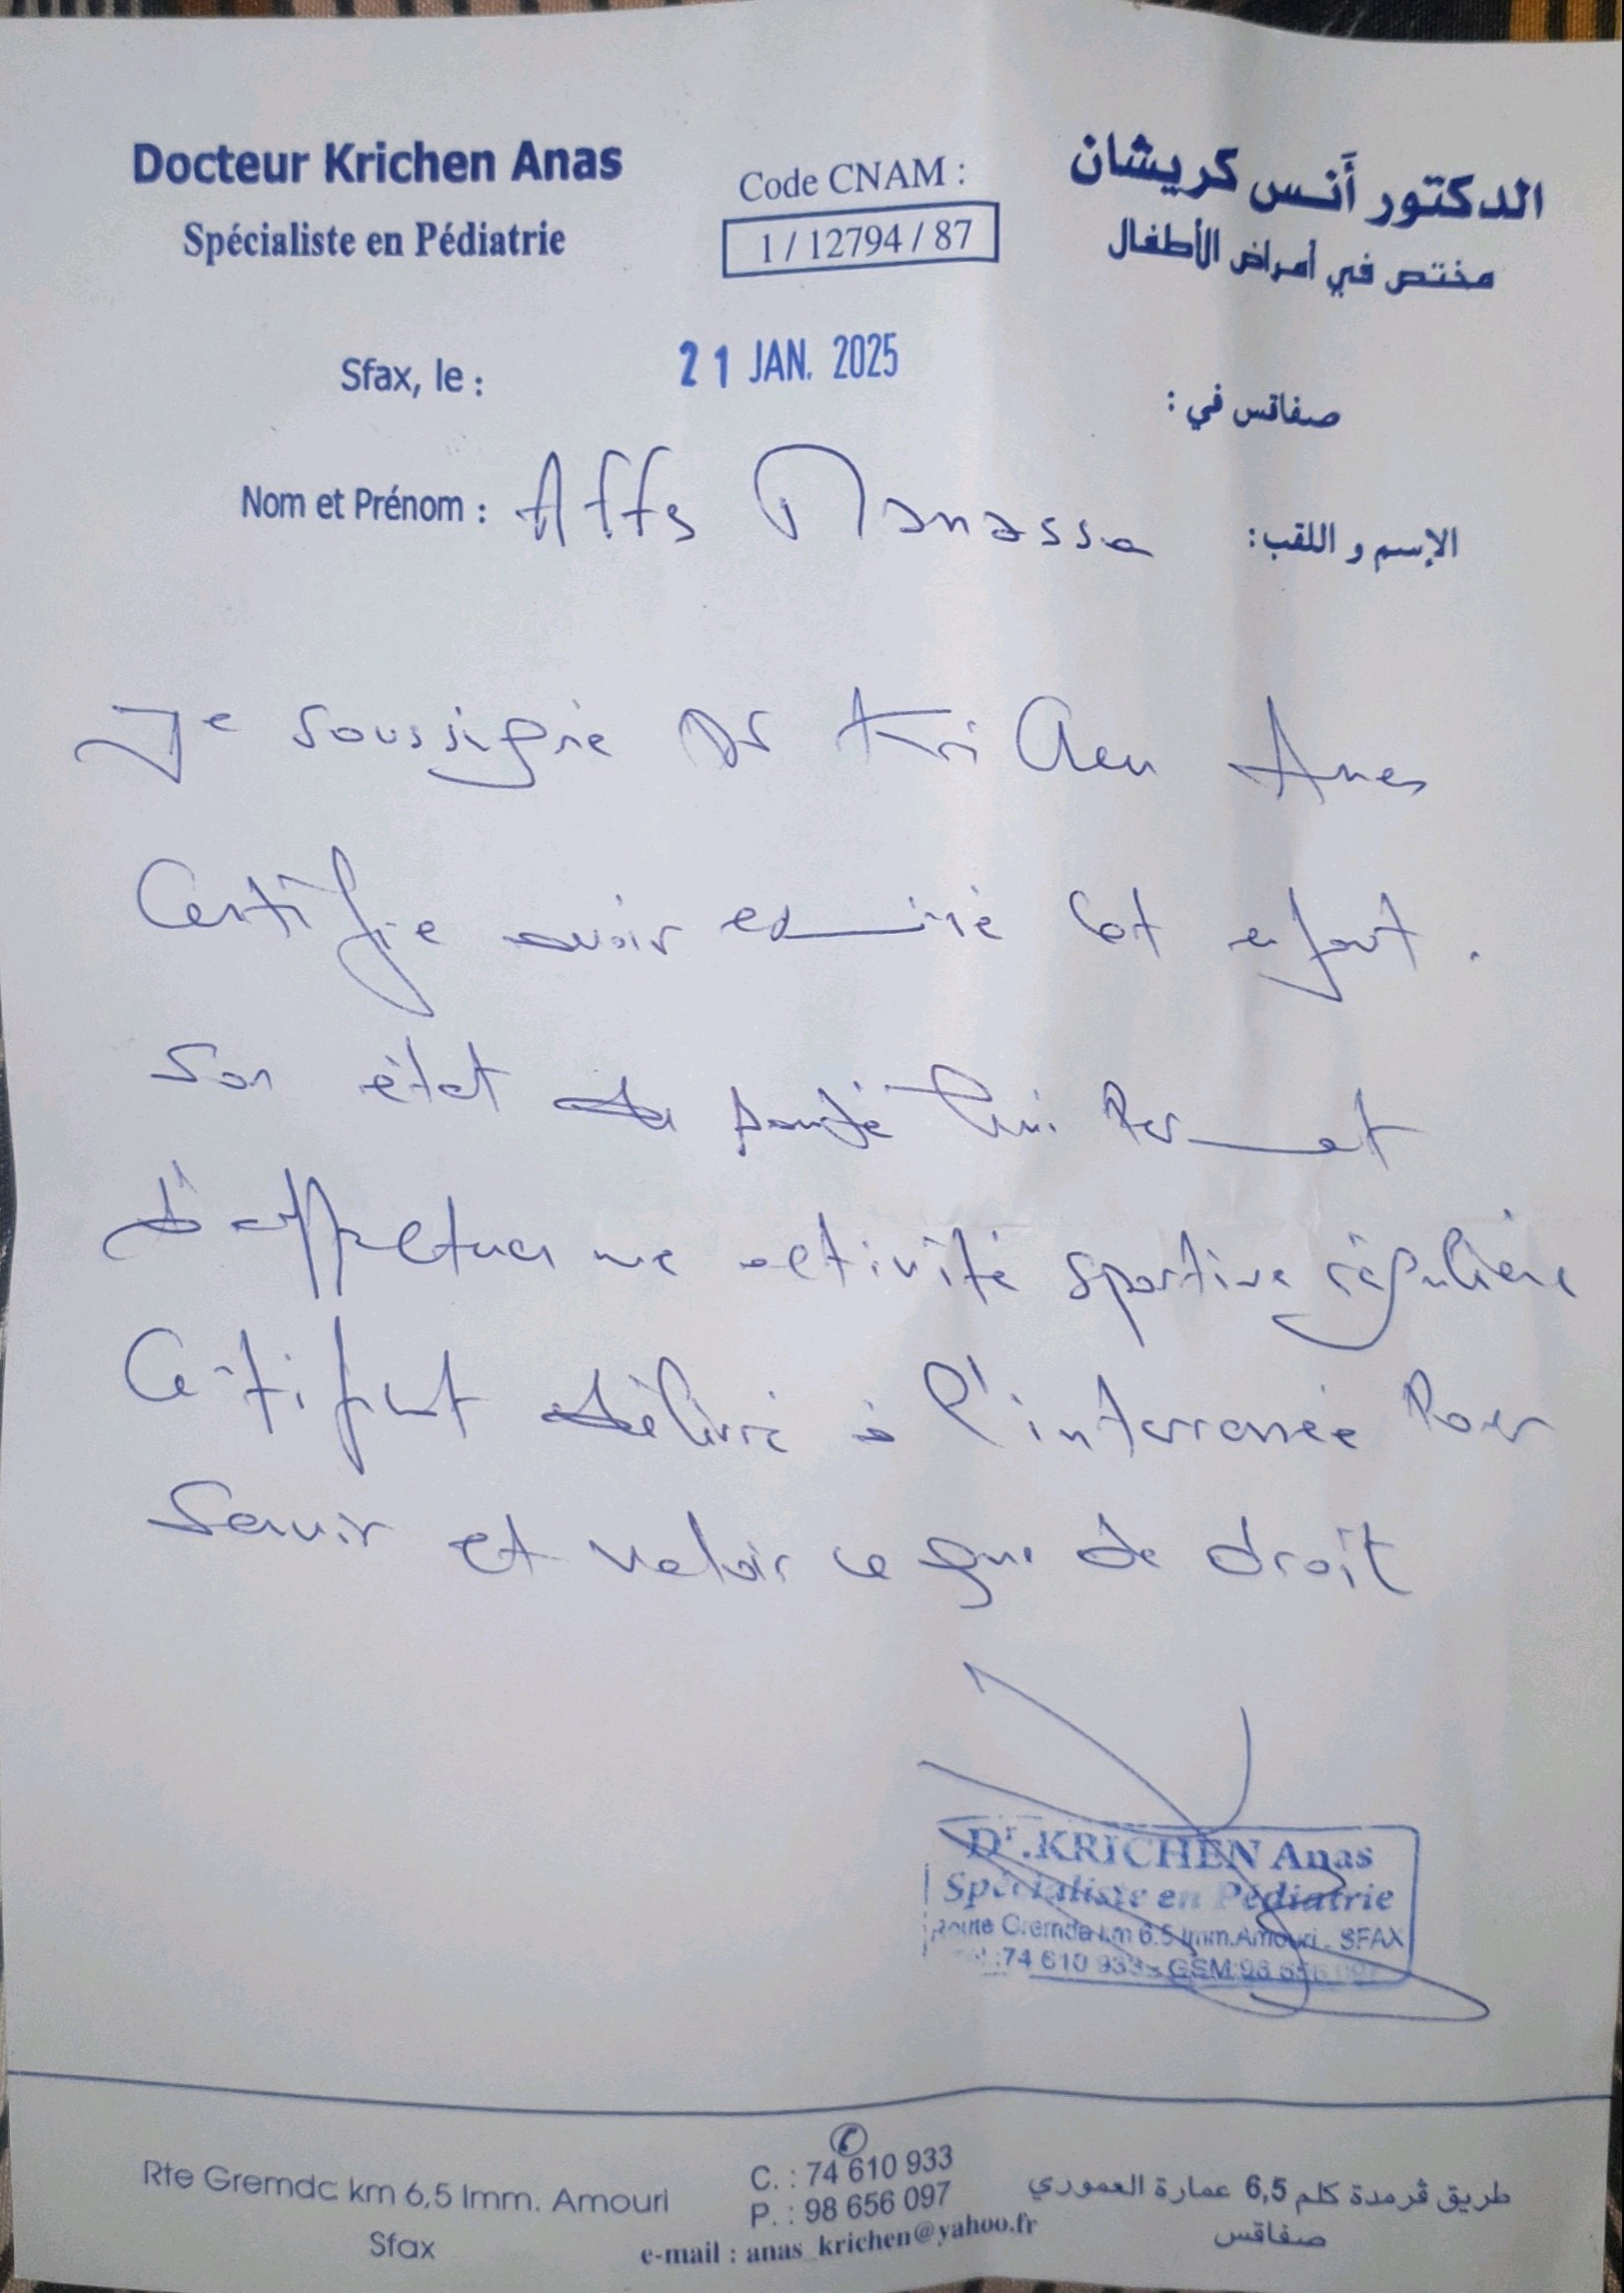 Docteur Krichen Anas
Spécialiste en Pédiatrie
Code CNAM :
1 / 12794 / 87
الدكتور أَنس كريشان
مختص في أمراض الأطفال
Sfax, le : 21 JAN. 2025 صفاقس في :
Nom et Prénom : Affs Manassa الإسم و اللقب:
Je soussigné Dr Krichen Anas
Certifie avoir examiné cet enfant.
Son état de santé lui permet
d'effectuer une activité sportive régulière
Certificat délivré à l'interessée pour
servir et valoir ce que de droit
Dr.KRICHEN Anas
Spécialiste en Pédiatrie
Route Gremda km 6.5 Imm.Amouri - SFAX
:74 610 933 - GSM 98 656 097
Rte Gremdc km 6,5 Imm. Amouri
Sfax
C. : 74 610 933
P. : 98 656 097
e-mail : anas_krichen@yahoo.fr
طريق ڨرمدة كلم 6,5 عمارة العموري
صفاقس